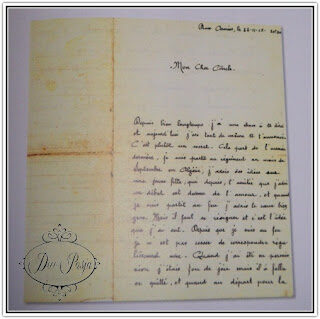 le 22-11-
Mon Cher Oncle.
Depuis bien longtemps j'ai une chose à te dire
et aujourd'hui j'ai tant de te l'annoncer
C'est plutôt un secret. Cela part de l'année
dernière. Je suis parti au régiment au mois de
Septembre en j'avais des idées sur
une jeune fille, que depuis, l'amitié que j'avais
au début est devenu de l'amour, et quand
je suis partit au j'avais le cœur bien
gros. Mais il faut se résigner et c'est l'idée
que j'ai eut. Depuis que je suis au
je n'ai pas cessé de correspondre régu
lièrement avec. Quand j'ai été en permis
sion j'étais fou de joie mais il a fallu
se quitté, et quand au départ pour la